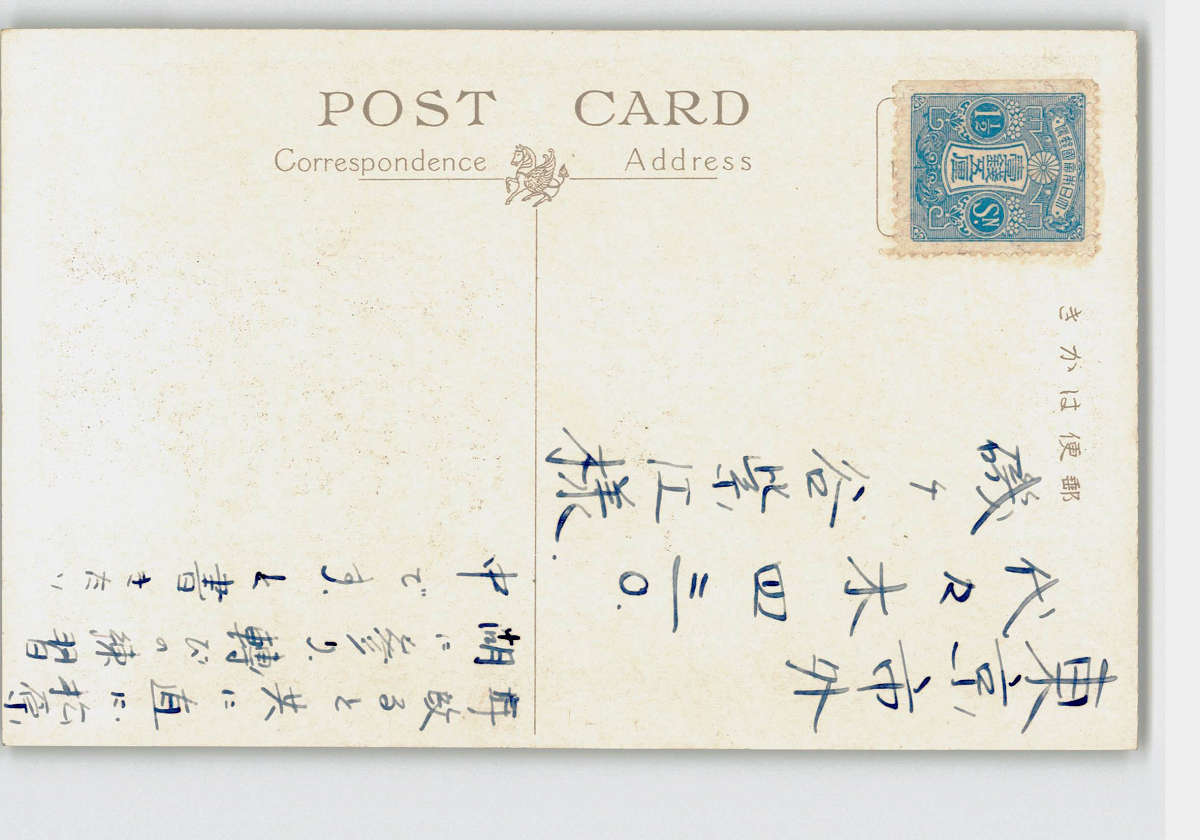 POST CARD
Correspondence
Address
郵便はかき
大日本帝國郵便
壹錢五厘
1½
Sn.
東京市外
代々木四三〇.
磯ヶ谷紫江様.
年改ると共に直に松原
湖に参り、轉びの練習
中です、と書きたい